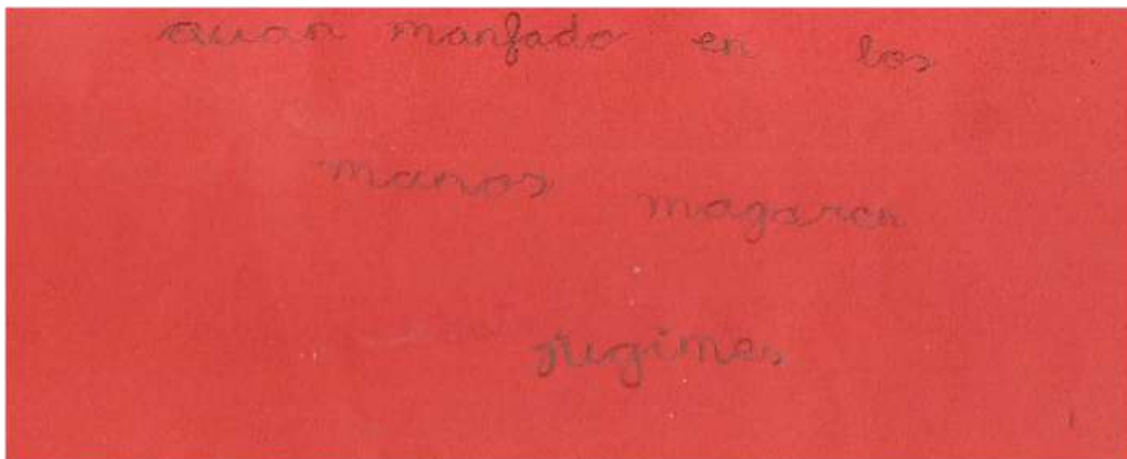 auan manfado en los
manos magarcn
Jugimes